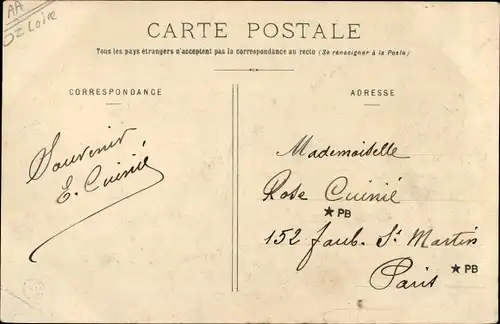 AA
Dz Loire
CARTE POSTALE
Tous les pays étrangers n'acceptent pas la correspondance au recto (Se renseigner à la Poste)
CORRESPONDANCE
ADRESSE
Souvenir
E. Cuinié
Mademoiselle
Rose Cuinié
★ PB
152 Faub. St Martin
Paris
★ PB